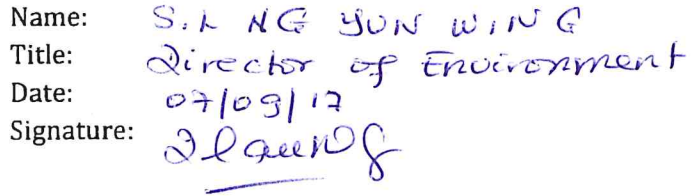 Name: S.L NG YUN WING
Title: Director of Environment
Date: 07/09/17
Signature: